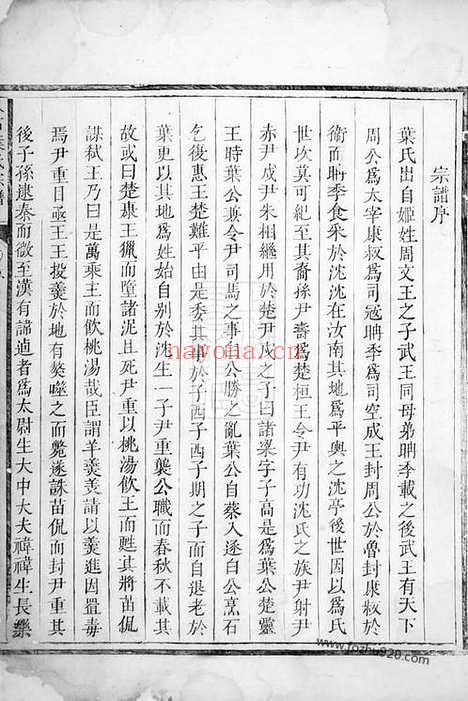 宗譜序
葉氏出自姬姓周文王之子武王同母弟聃季載之後武王有天下
周公爲太宰康叔爲司寇聃季爲司空成王封周公於魯封康叔於
衛而聃季食采於沈沈在汝南其地爲平輿之沈亭後世因以爲氏
世次莫可紀至其裔孫尹壽爲楚桓王令尹有功沈氏之族尹射尹
赤尹戍尹朱相繼用於楚尹戍之子曰諸梁字子高是爲葉公楚靈
王時葉公兼令尹司馬之事白公勝之亂葉公自蔡入逐白公烹石
乞後惠王楚難平由是委其事於子西子期之子而自退老於
葉更以其地爲姓始自别於沈生一子尹重襲公職而春秋不載其
故或曰楚康王獵而墮諸泥且死尹重以桃湯飲王而甦其將苗侃
謀弑王乃曰是萬乘主而飲桃湯哉臣謂羊羹美請以羹進因置毒
焉尹重目亟王王投羹於地有獒噬之而斃遂誅苗侃而封尹重其
後子孫逮秦而微至漢有諱適者爲太尉生大中大夫禕禕生長樂
nayona.cn
www.fozhu920.com